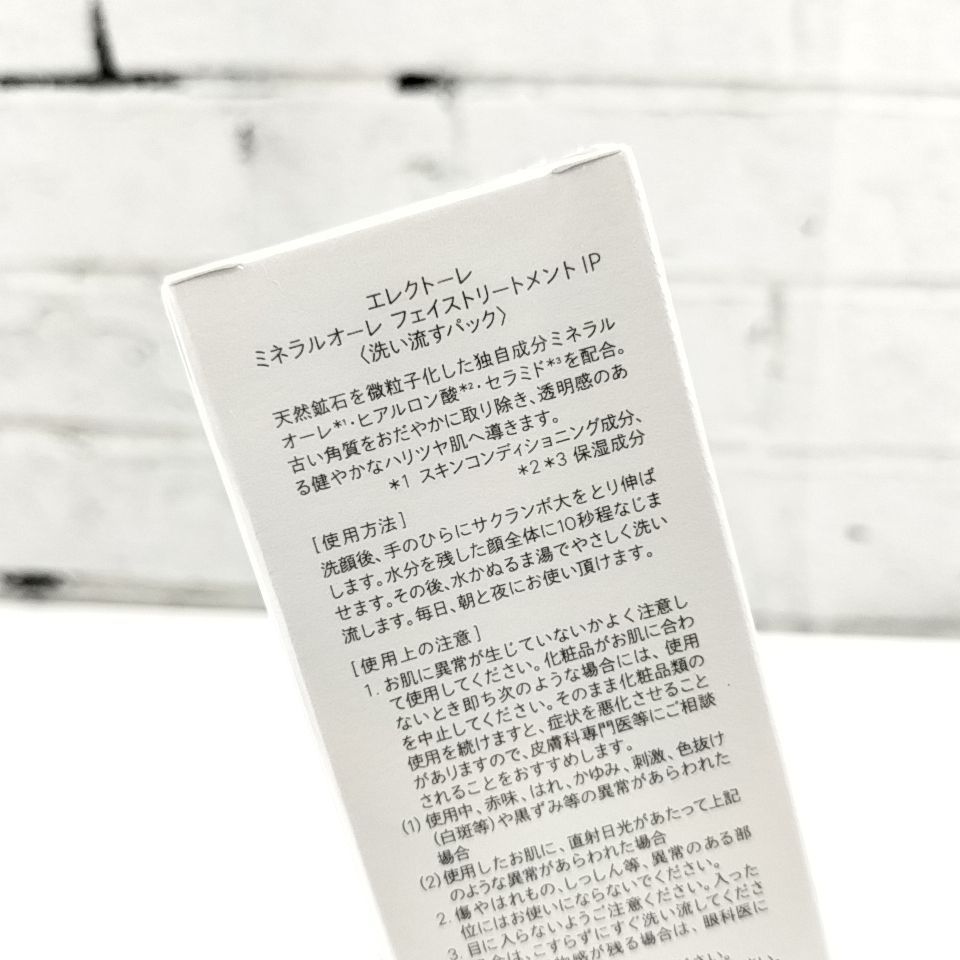 エレクトーレ
ミネラルオーレ フェイストリートメント IP
〈洗い流すパック〉
天然鉱石を微粒子化した独自成分ミネラル
オーレ*1・ヒアルロン酸*2・セラミド*3を配合。
古い角質をおだやかに取り除き、透明感のあ
る健やかなハリツヤ肌へ導きます。
*1 スキンコンディショニング成分、
*2*3 保湿成分
[使用方法]
洗顔後、手のひらにサクランボ大をとり伸ば
します。水分を残した顔全体に10秒程なじま
せます。その後、水かぬるま湯でやさしく洗い
流します。毎日、朝と夜にお使い頂けます。
[使用上の注意]
1. お肌に異常が生じていないかよく注意し
て使用してください。化粧品がお肌に合わ
ないとき即ち次のような場合には、使用
を中止してください。そのまま化粧品類の
使用を続けますと、症状を悪化させること
がありますので、皮膚科専門医等にご相談
されることをおすすめします。
(1) 使用中、赤味、はれ、かゆみ、刺激、色抜け
(白斑等)や黒ずみ等の異常があらわれた
場合
(2)使用したお肌に、直射日光があたって上記
のような異常があらわれた場合
2. 傷やはれもの、しっしん等、異常のある部
位にはお使いにならないでください。
3. 目に入らないようご注意ください。入った
は、こすらずにすぐ洗い流してくださ
感が残る場合は、眼科医に